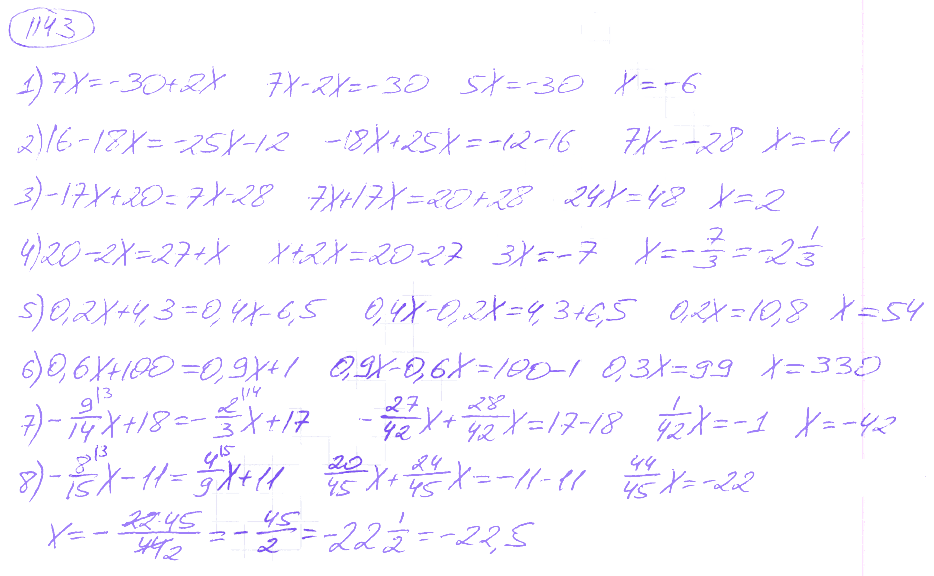 1143
1) 7x=-30+2x 7x-2x=-30 5x=-30 x=-6
2) 16-18x=-25x-12 -18x+25x=-12-16 7x=-28 x=-4
3) -17x+20=7x-28 7x+17x=20+28 24x=48 x=2
4) 20-2x=27+x x+2x=20-27 3x=-7 x=-7/3=-2 1/3
5) 0,2x+4,3=0,4x-6,5 0,4x-0,2x=4,3+6,5 0,2x=10,8 x=54
6) 0,6x+100=0,9x+1 0,9x-0,6x=100-1 0,3x=99 x=330
7) -9/14^{|3}x+18=-2/3^{|14}x+17 -27/42x+28/42x=17-18 1/42x=-1 x=-42
8) -8/15^{|3}x-11=4/9^{|5}x+11 20/45x+24/45x=-11-11 44/45x=-22
x=-22·45/44 2=-45/2=-22 1/2=-22,5